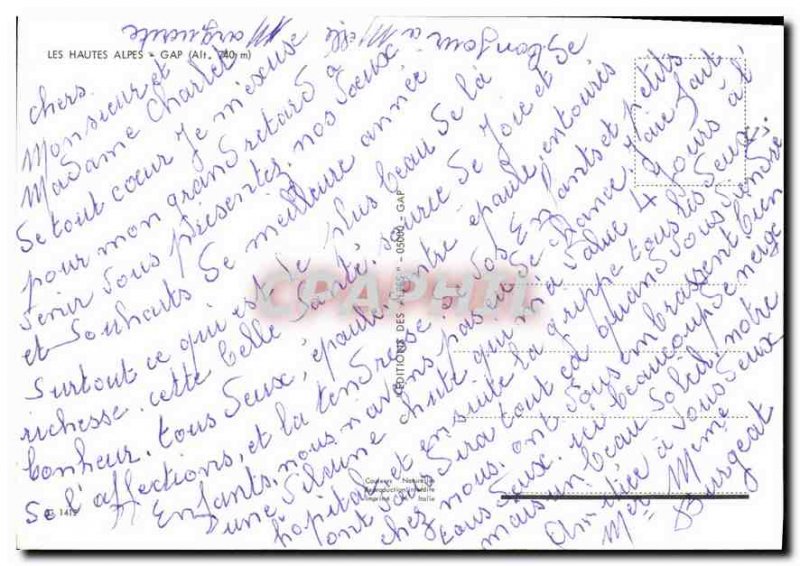 LES HAUTES ALPES - GAP (Alt. 740 m)
bonjour à Melle Marguerite
chers.
Monsieur et
Madame Charlet
De tout cœur Je m'excuse
pour mon grand retard à
Venir Vous présentez, nos Voeux
et Souhaits De meilleure année
Surtout ce qui est le plus beau De la
richesse. cette belle Santé. source De Joie et De
bonheur. tous Deux, épaule entre épaule, entourés
De l'affections, et la tendresse De Vos Enfants et petits
Enfants. nous n'avons pas eu De chance, J'ai fait
une Vilaine chute qui m'a Value 4 Jours à l'
hôpital, et ensuite la grippe tous les Deux.
ont Sait Dira tout ça quand Vous Viendre
chez nous. ont Vous embrassent bien
tous Deux. ici beaucoup De neige
mais un beau Soleil, notre
Amitiée à Vous Deux
Mer Meme
Bourgeat
EDITIONS DES "ALPES" - 05000 - GAP
CPAPHIL
Couleurs Naturelles
Reproduction Interdite
Imprimé en Italie
1415